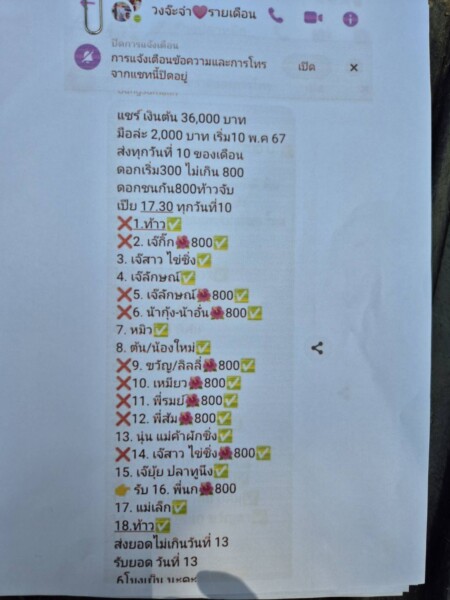 วงจ๊ะจ๋า🩷รายเดือน
ปิดการแจ้งเตือน
การแจ้งเตือนข้อความและการโทร
จากแชทนี้ปิดอยู่
เปิด
แชร์ เงินต้น 36,000 บาท
มือล่ะ 2,000 บาท เริ่ม10 พ.ค 67
ส่งทุกวันที่ 10 ของเดือน
ดอกเริ่ม300 ไม่เกิน 800
ดอกชนกัน800ท้าวจับ
เปีย 17.30 ทุกวันที่10
❌1.ท้าว✅
❌2. เจ๊กิ๊ก🌺800✅
3. เจ๊สาว ไข่ซิ่ง✅
4. เจ๊ลักษณ์✅
❌5. เจ๊ลักษณ์🌺800✅
❌6. น้ากุ้ง-น้าอั๋น🌺800✅
7. หมิว✅
8. ต้น/น้องใหม่✅
❌9. ขวัญ/ลิลลี่🌺800✅
❌10. เหมียว🌺800✅
❌11. พี่รมย์🌺800✅
❌12. พี่ส้ม🌺800✅
13. นุ่น แม่ค้าผักซิ่ง✅
❌14. เจ๊สาว ไข่ซิ่ง🌺800✅
15. เจ๊ยุ้ย ปลาทูนึ่ง✅
👉 รับ 16. พี่นก🌺800
17. แม่เล็ก✅
18.ท้าว✅
ส่งยอดไม่เกินวันที่ 13
รับยอด วันที่ 13